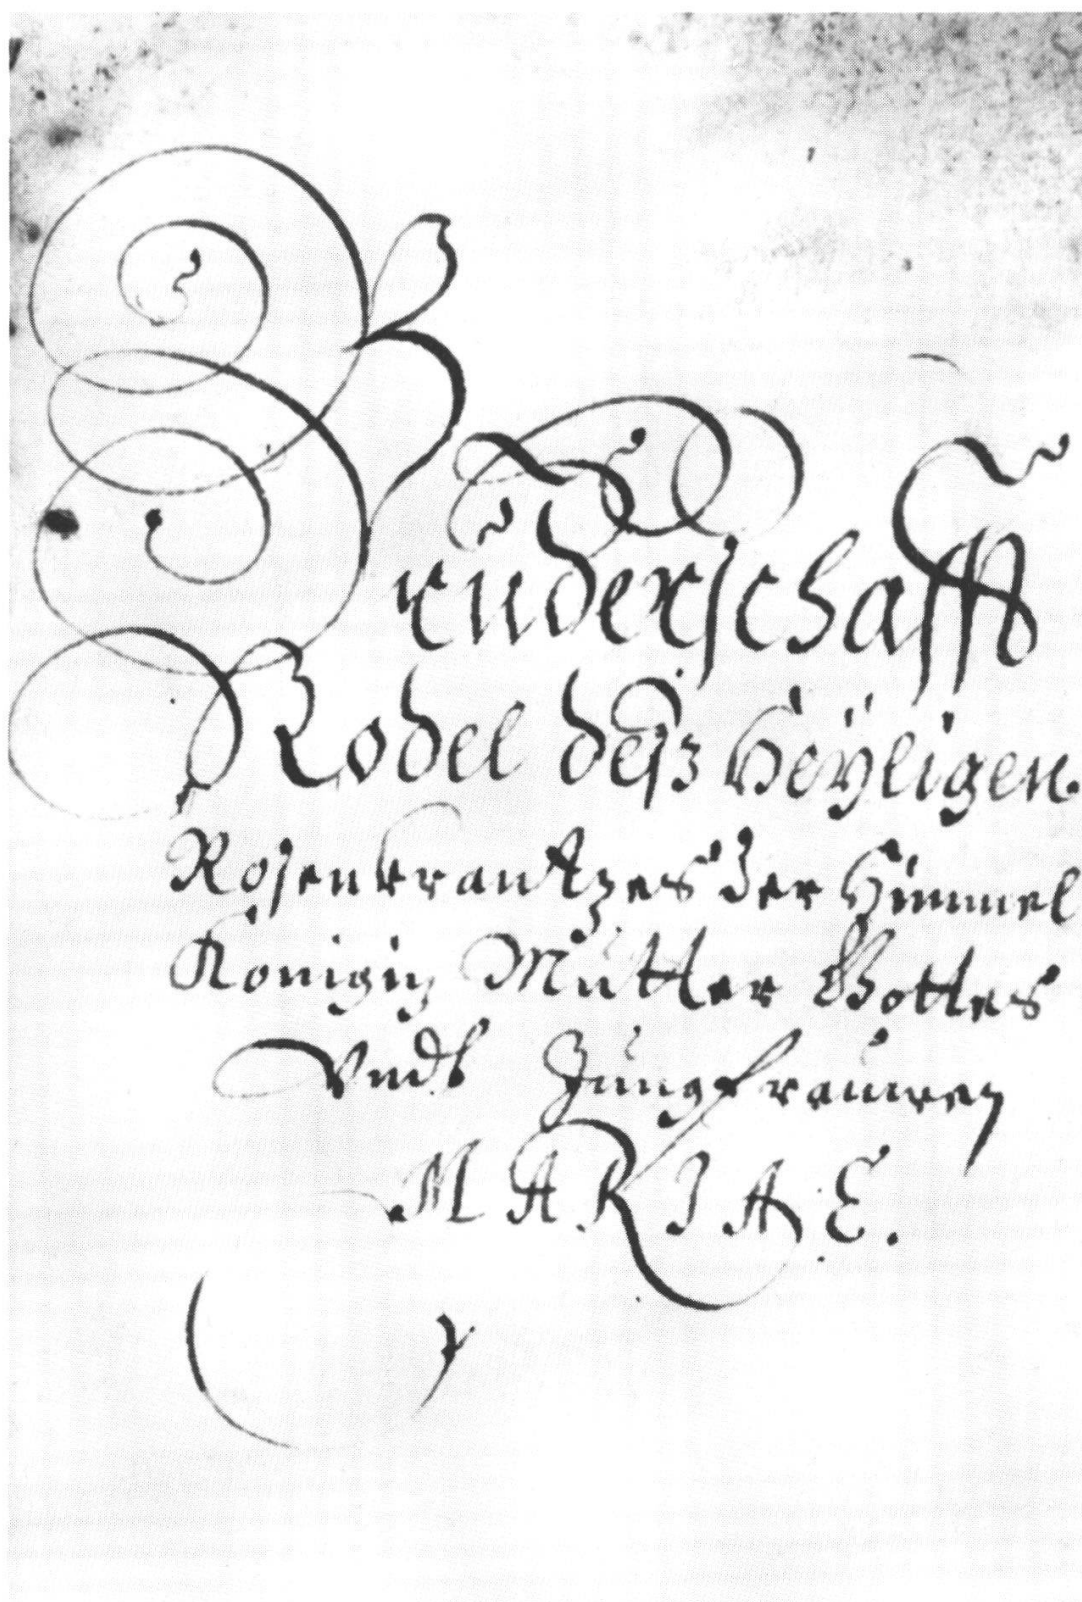 Brüderschafft
Rodel deß Heÿligen
Rosenkrantzes der Himmel
Königin Mütter Gottes
Vndt Jüngfrauwen
MARIAE.